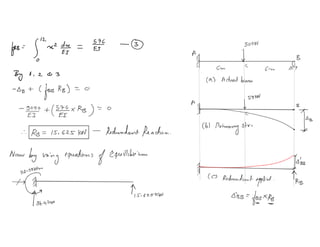 f_BB = ∫₀¹² x² dx/EI = 576/EI — ③
By 1, 2 & 3
-Δ_B + (f_BB R_B) = 0
-9000/EI + (576/EI × R_B) = 0
∴ R_B = 15.625 kN — Redundant Reaction.
Now by using equations of Equilibrium
15.625 kN
50 kN
A
B
6m
C
6m
(a) Actual beam
50 kN
A
B
Δ_B
(b) Primary str.
Δ'_BB
R_B
(c) Redundant applied
Δ'_BB = f_BB × R_B